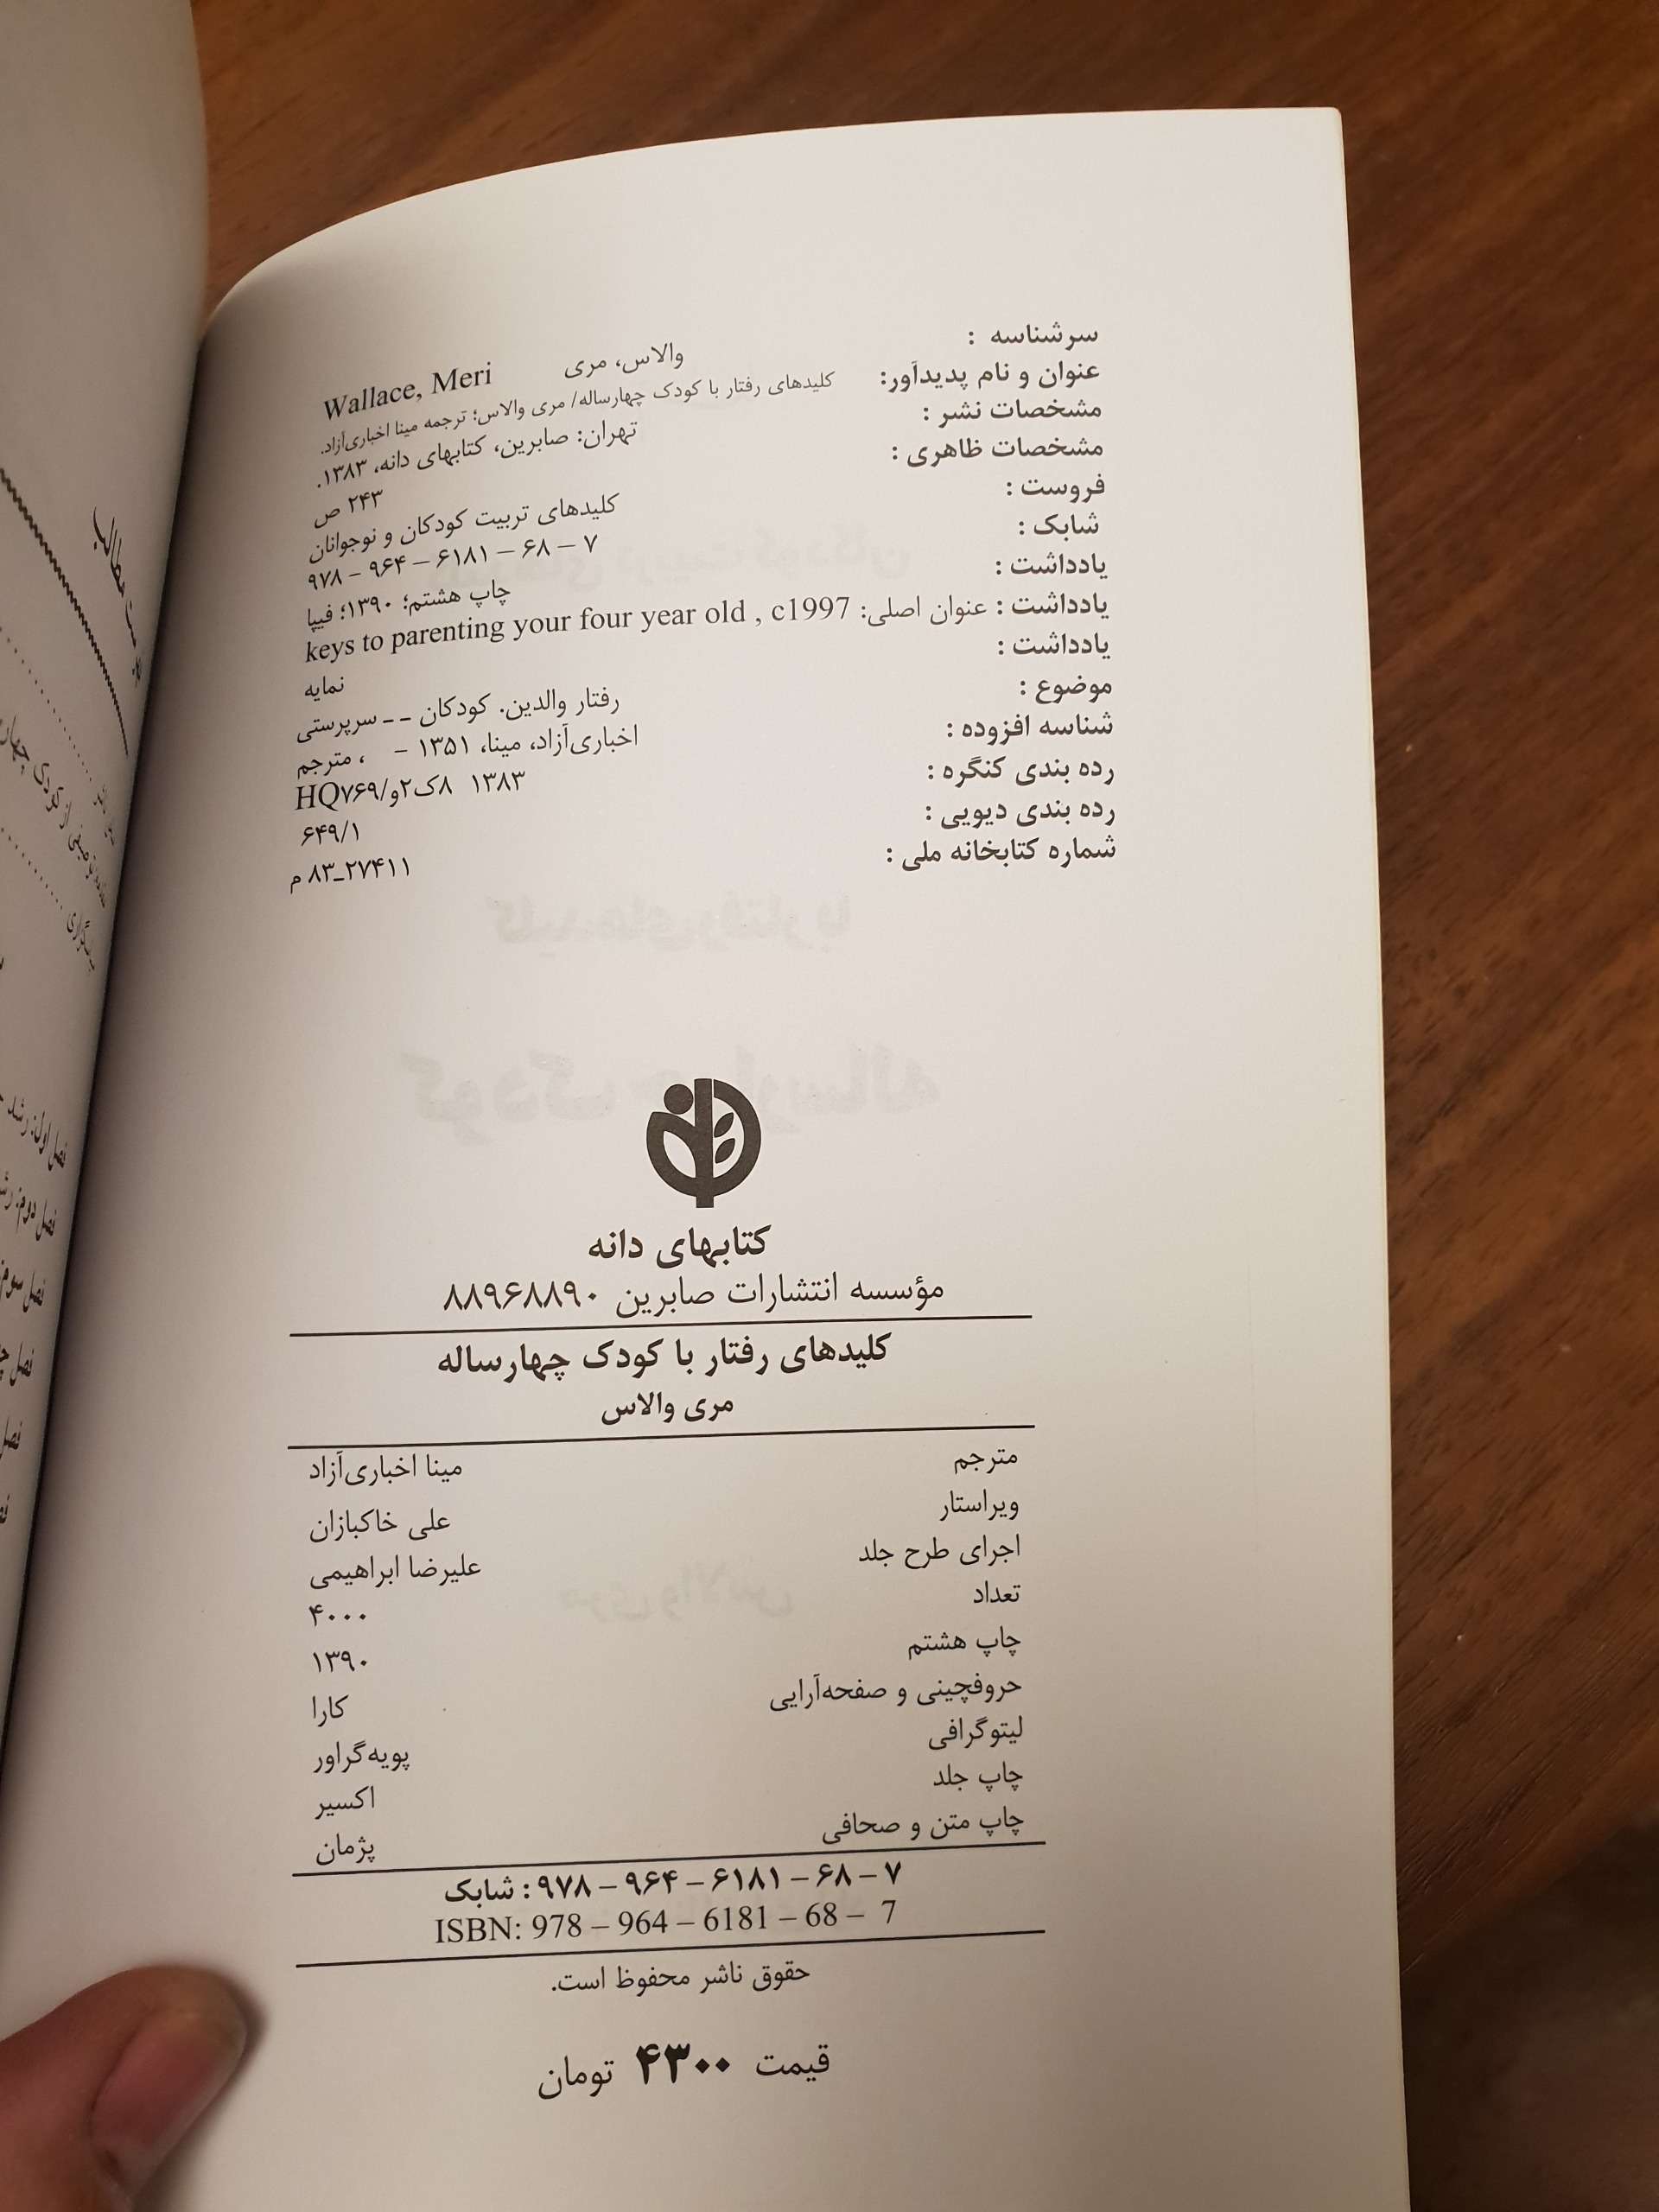 سرشناسه : والاس، مری Wallace, Meri
عنوان و نام پدیدآور: کلیدهای رفتار با کودک چهارساله/ مری والاس؛ ترجمه مینا اخباری‌آزاد.
مشخصات نشر : تهران: صابرین، کتابهای دانه، ۱۳۸۳.
مشخصات ظاهری : ۲۴۳ ص
فروست : کلیدهای تربیت کودکان و نوجوانان
شابک : ۹۷۸ – ۹۶۴ – ۶۱۸۱ – ۶۸ – ۷
یادداشت : چاپ هشتم؛ ۱۳۹۰؛ فیپا
یادداشت : عنوان اصلی: keys to parenting your four year old , c1997
یادداشت : نمایه
موضوع : رفتار والدین. کودکان ـ ـ سرپرستی
شناسه افزوده : اخباری‌آزاد، مینا، ۱۳۵۱ – ، مترجم
رده بندی کنگره : ۱۳۸۳ ۸ک۲و/HQ۷۶۹
رده بندی دیویی : ۶۴۹/۱
شماره کتابخانه ملی : ۲۷۴۱۱ـ۸۳ م
کتابهای دانه
مؤسسه انتشارات صابرین ۸۸۹۶۸۸۹۰
کلیدهای رفتار با کودک چهارساله
مری والاس
مترجم مینا اخباری‌آزاد
ویراستار علی خاکبازان
اجرای طرح جلد علیرضا ابراهیمی
تعداد ۴۰۰۰
چاپ هشتم ۱۳۹۰
حروفچینی و صفحه‌آرایی کارا
لیتوگرافی پویه‌گراور
چاپ جلد اکسیر
چاپ متن و صحافی پژمان
شابک : ۹۷۸ – ۹۶۴ – ۶۱۸۱ – ۶۸ – ۷
ISBN: 978 – 964 – 6181 – 68 – 7
حقوق ناشر محفوظ است.
قیمت ۴۳۰۰ تومان